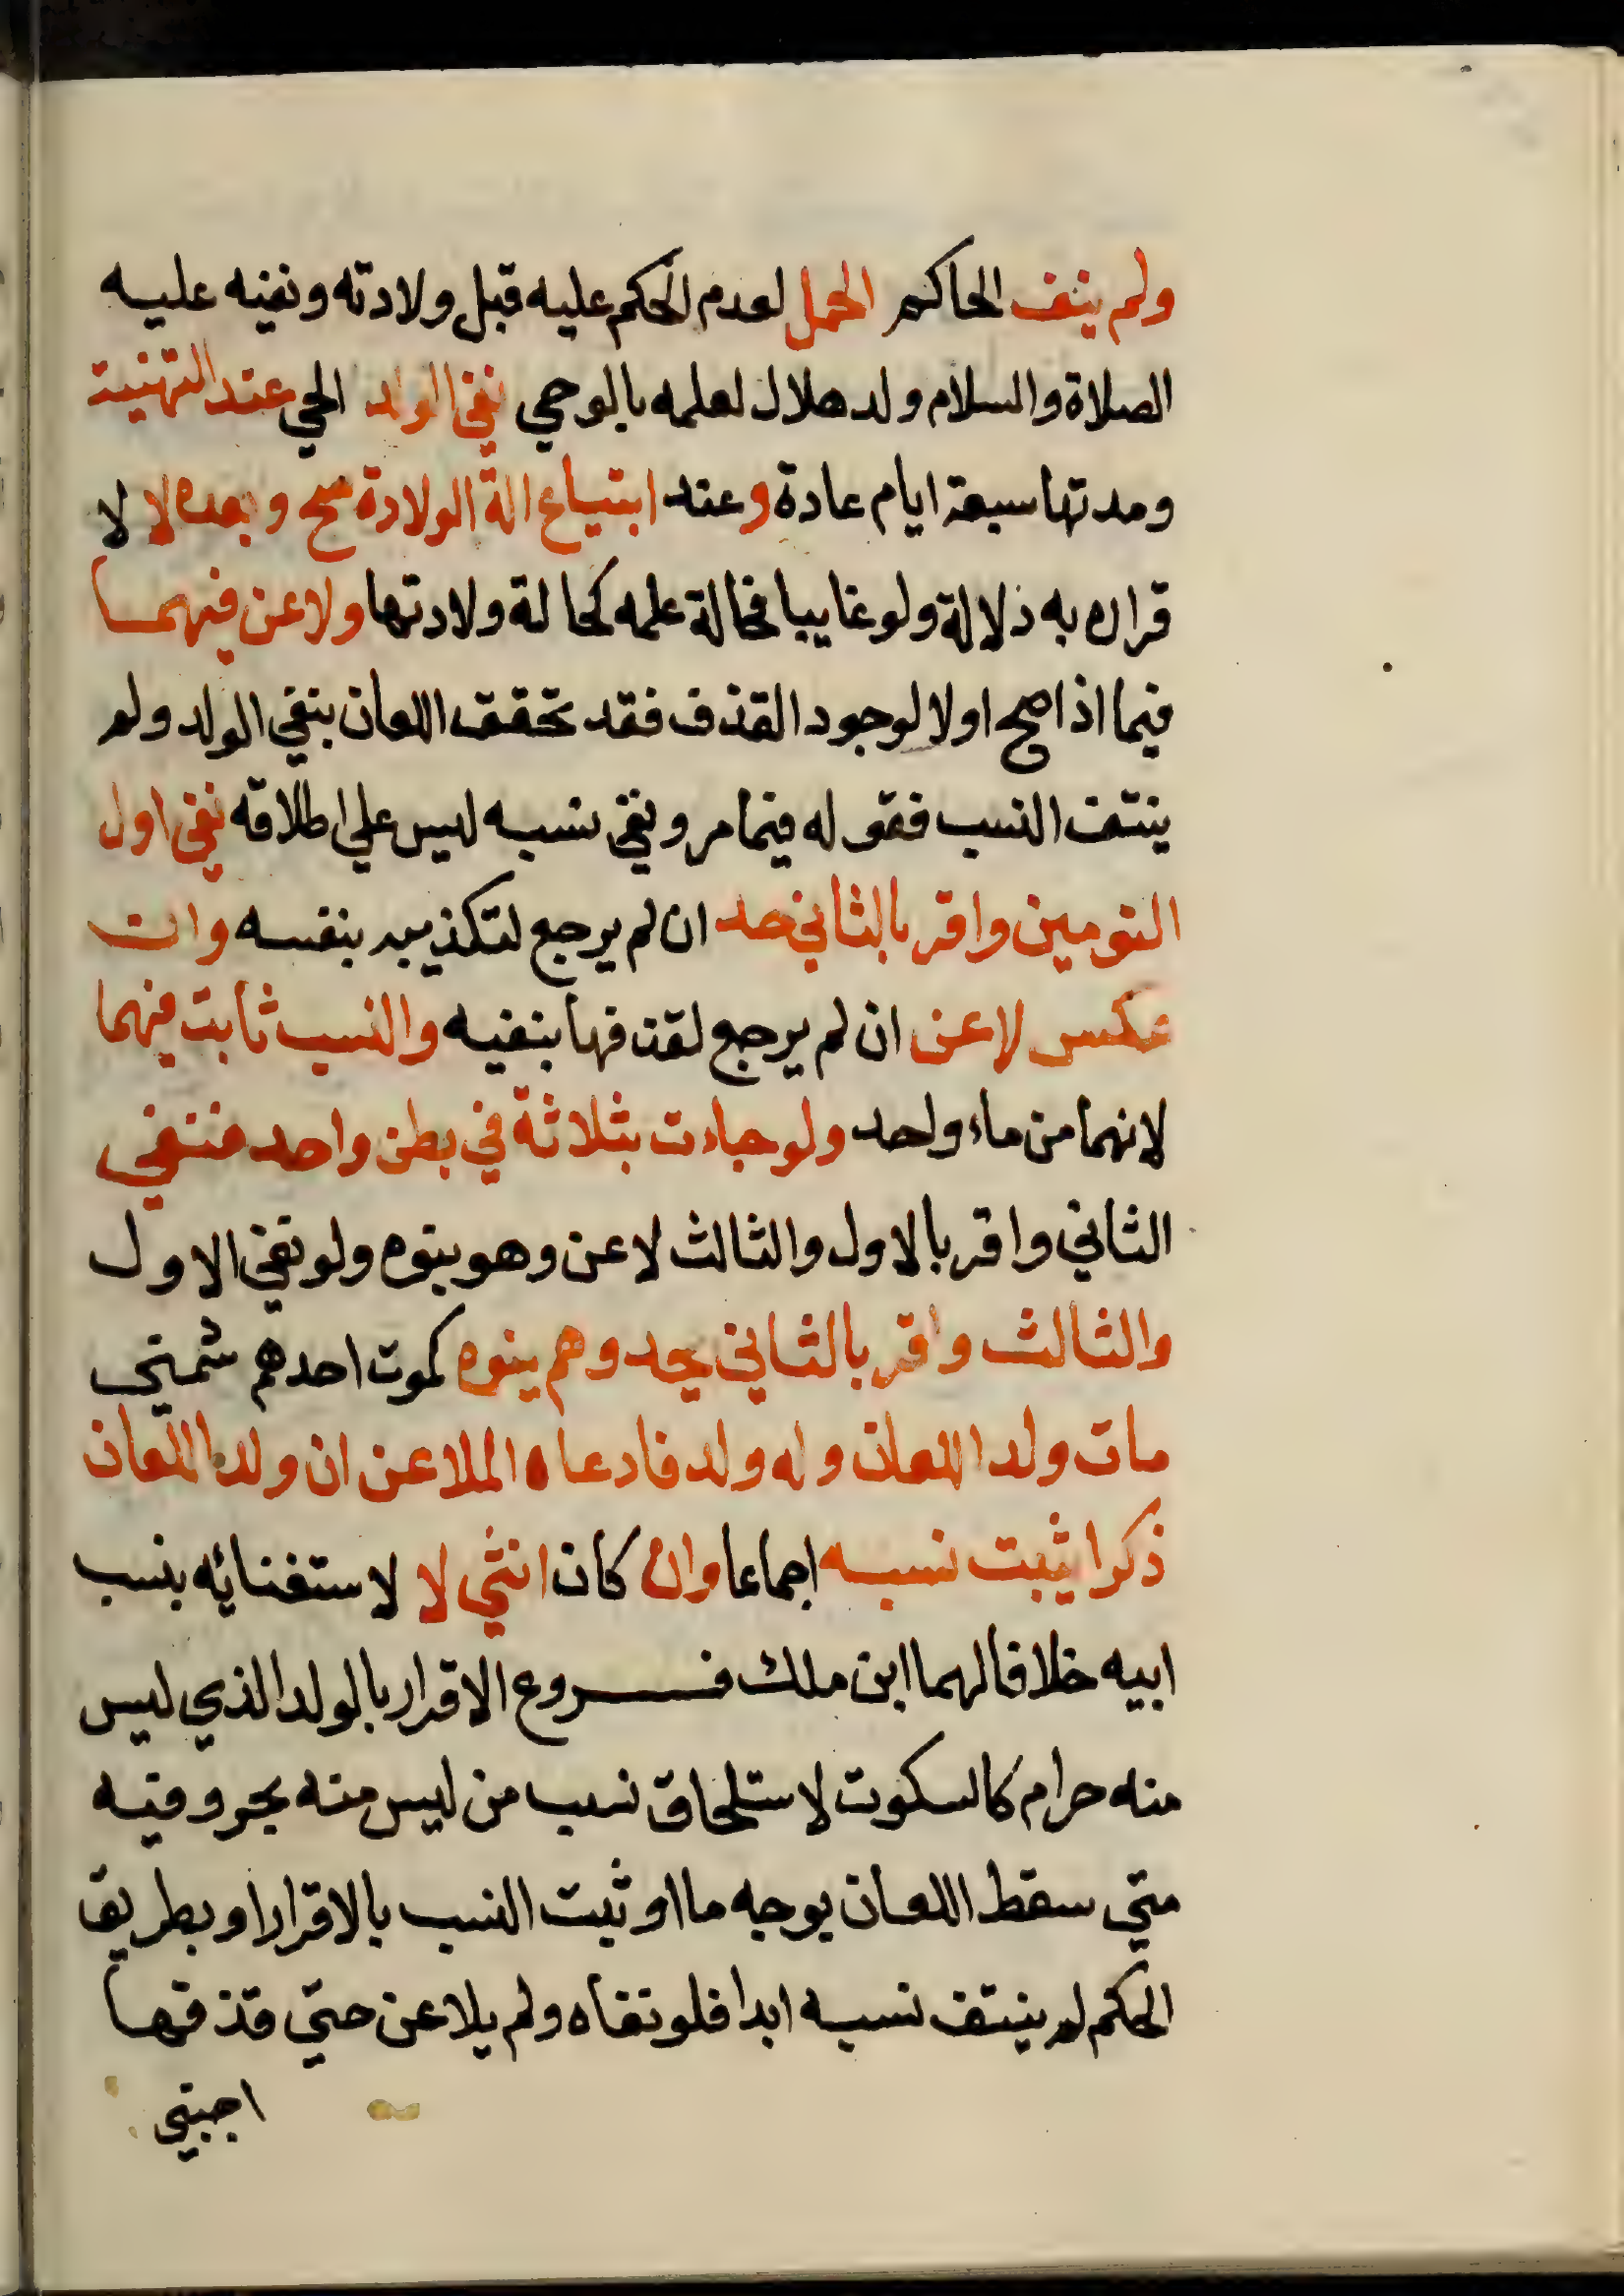 ولم ينف الحاكم الحمل لعدم الحكم عليه قبل ولادته ونفيه عليه
الصلاة والسلام ولد هلال لعلمه بالوحي نفي الولد الحي عند التهنية
ومدتها سبعة ايام عادة وعند ابتياع الة الولادة صح وبعده لا لا
قراره به دلالة ولو غايبا فحالة علمه كحالة ولادتها ولاعن فيهما
فيما اذا صح اولا لوجود القذف فقد تحقق اللعان بنفي الولد ولم
ينتف النسب فقوله فيما مر ونفي نسبه ليس علي اطلاقه نفي اول
التومين واقر بالثاني حد ان لم يرجع لتكذيبه بنفسه وان
عكس لاعن ان لم يرجع لقذفها بنفيه والنسب ثابت فيهما
لانهما من ماء واحد ولو جاءت بثلاثة في بطن واحد فنفي
الثاني واقر بالاول والثالث لاعن وهو بنوه ولو نفي الاول
والثالث واقر بالثاني يحد وهم بنوه كموت احدهم شمني
مات ولد اللعان وله ولد فادعاه الملاعن ان ولد اللعان
ذكرا يثبت نسبه اجماعا وان كان انثي لا لاستغنائه بنسب
ابيه خلافا لهما ابن ملك فروع الاقرار بالولد الذي ليس
منه حرام كالسكوت لاستلحاق نسب من ليس منه بحر وفيه
متي سقط اللعان بوجه ما او ثبت النسب بالاقرار او بطريق
الحكم لم ينتف نسبه ابدا فلو نفاه ولم يلاعن حتي قذفها
اجنبي